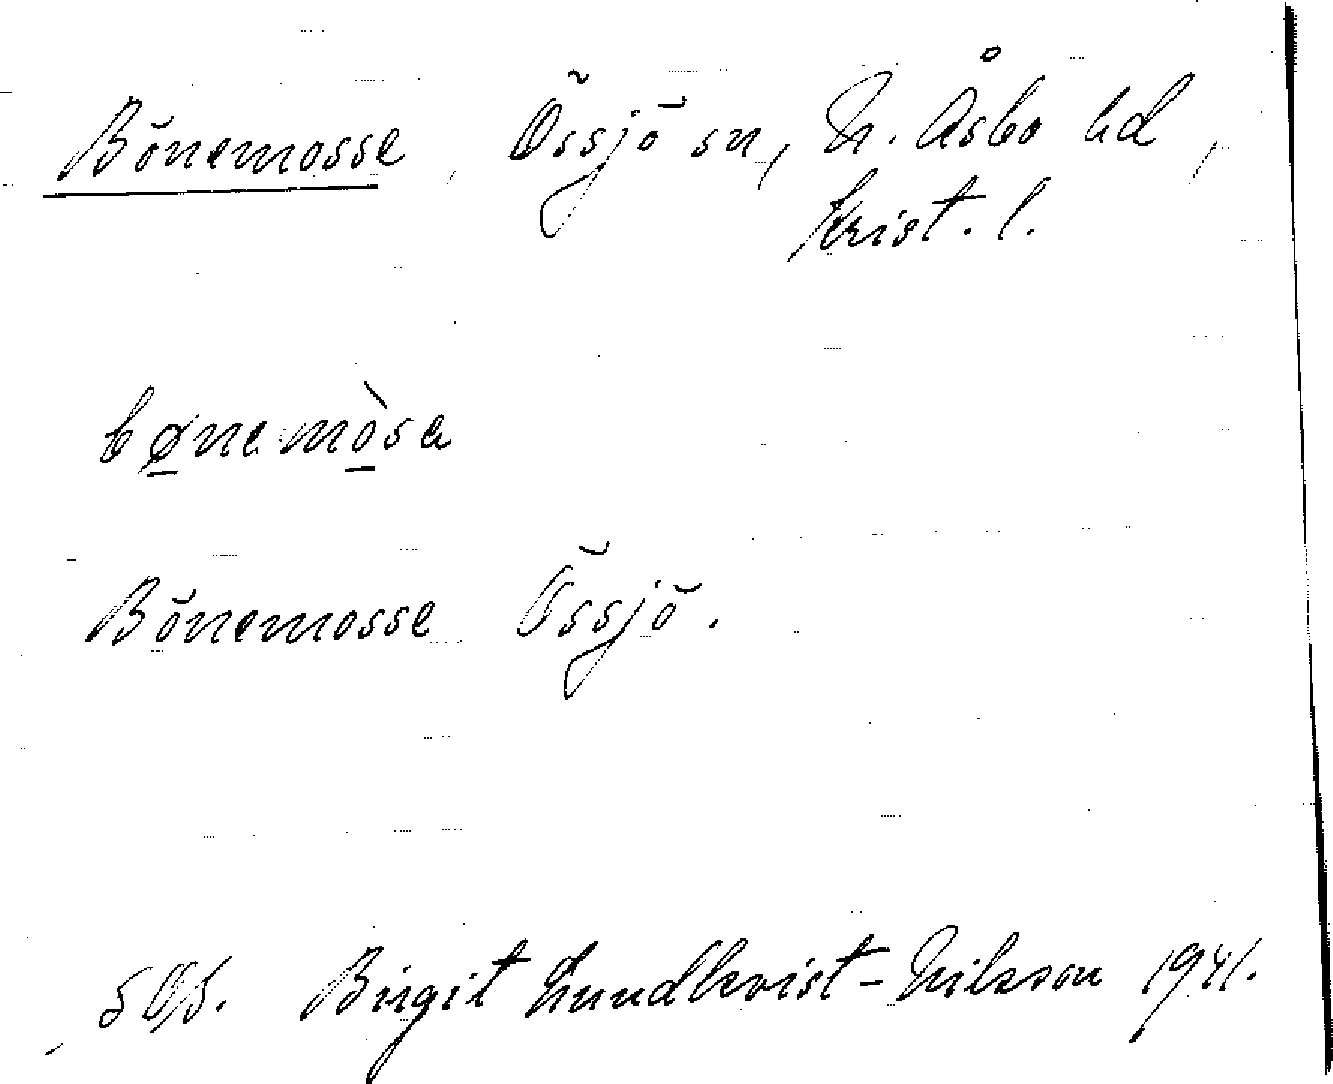 Bönemosse, Össjö sn, N. Åsbo hd,
Krist. l.
bønemòsa
Bönemosse Össjö.
Birgit Lundkvist-Nilsson 1941.